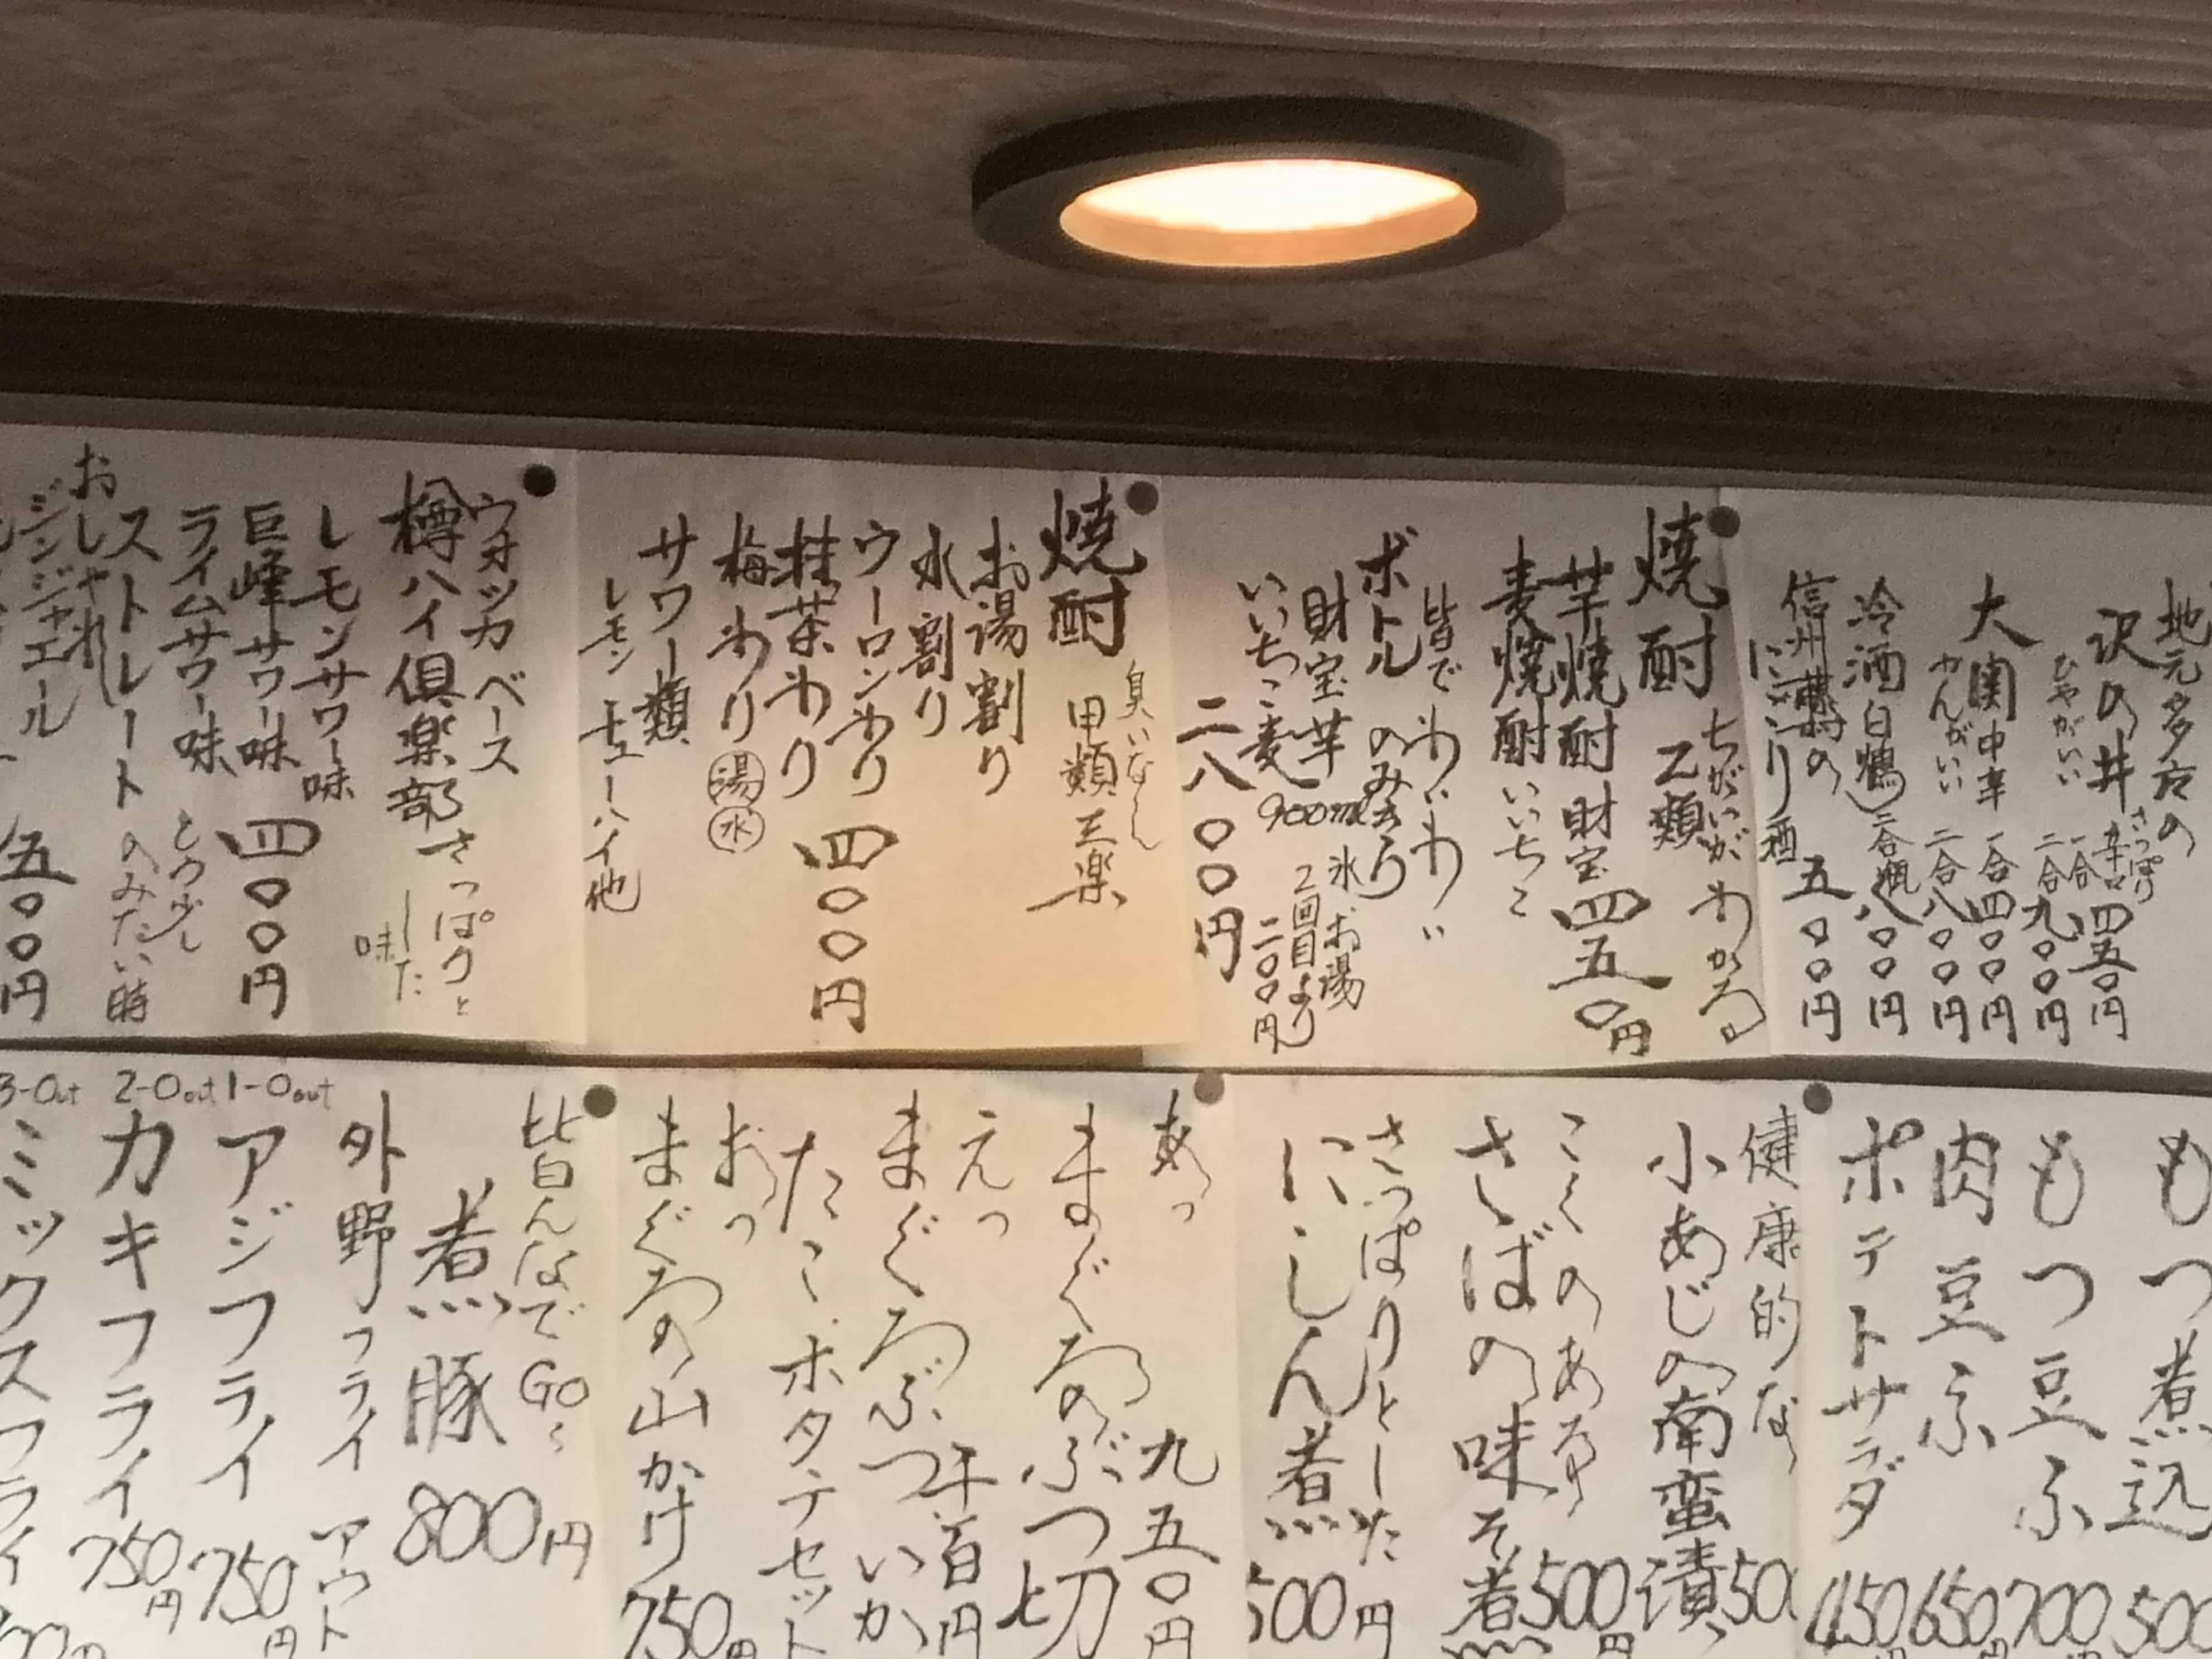 地元多摩の
沢の井 さっぱり辛口
一合 四五〇円
ひやがいい 二合 九〇〇円
大関 中辛 一合 四〇〇円
かんがいい 二合 八〇〇円
冷酒(白鶴)二合瓶 八〇〇円
信州の
にごり酒 五〇〇円
ちがいがわかる
焼酎 乙類
芋焼酎 財宝 四五〇円
麦焼酎 いいちこ
皆でわいわい
ボトル のみきり
財宝 芋 900ml
いいちこ 麦
氷・お湯
2回目より
二〇〇円
二八〇〇円
臭いなし
焼酎 甲類 三楽
お湯割り
水割り
ウーロンわり 四〇〇円
桂茶わり
梅わり 湯 水
サワー類
レモン 酎ハイ他
ウオッカベース
樽ハイ倶楽部 さっぱりと
した
味
レモンサワー味
巨峰サワー味 四〇〇円
ライムサワー味 もう少し
ストレート のみたい時
おしゃれ
ジンジャエール
五〇〇円
もつ煮込 500
もつ豆ふ 700円
肉豆ふ 650円
ポテトサラダ 450円
健康的な
小あじの南蛮漬 50
こくのある
さばの味そ煮 500円
さっぱりとした
にしん煮 500円
あっ 九五〇円
まぐろのぶつ切
えっ 千百円
まぐろぶつ いか
たこ・ホタテセット
おっ
まぐろの山かけ 750円
皆んなでGO〜
煮豚 800円
外野フライ アウト
1-Out
アジフライ 750円
2-Out
カキフライ 750円
3-Out
ミックスフライ